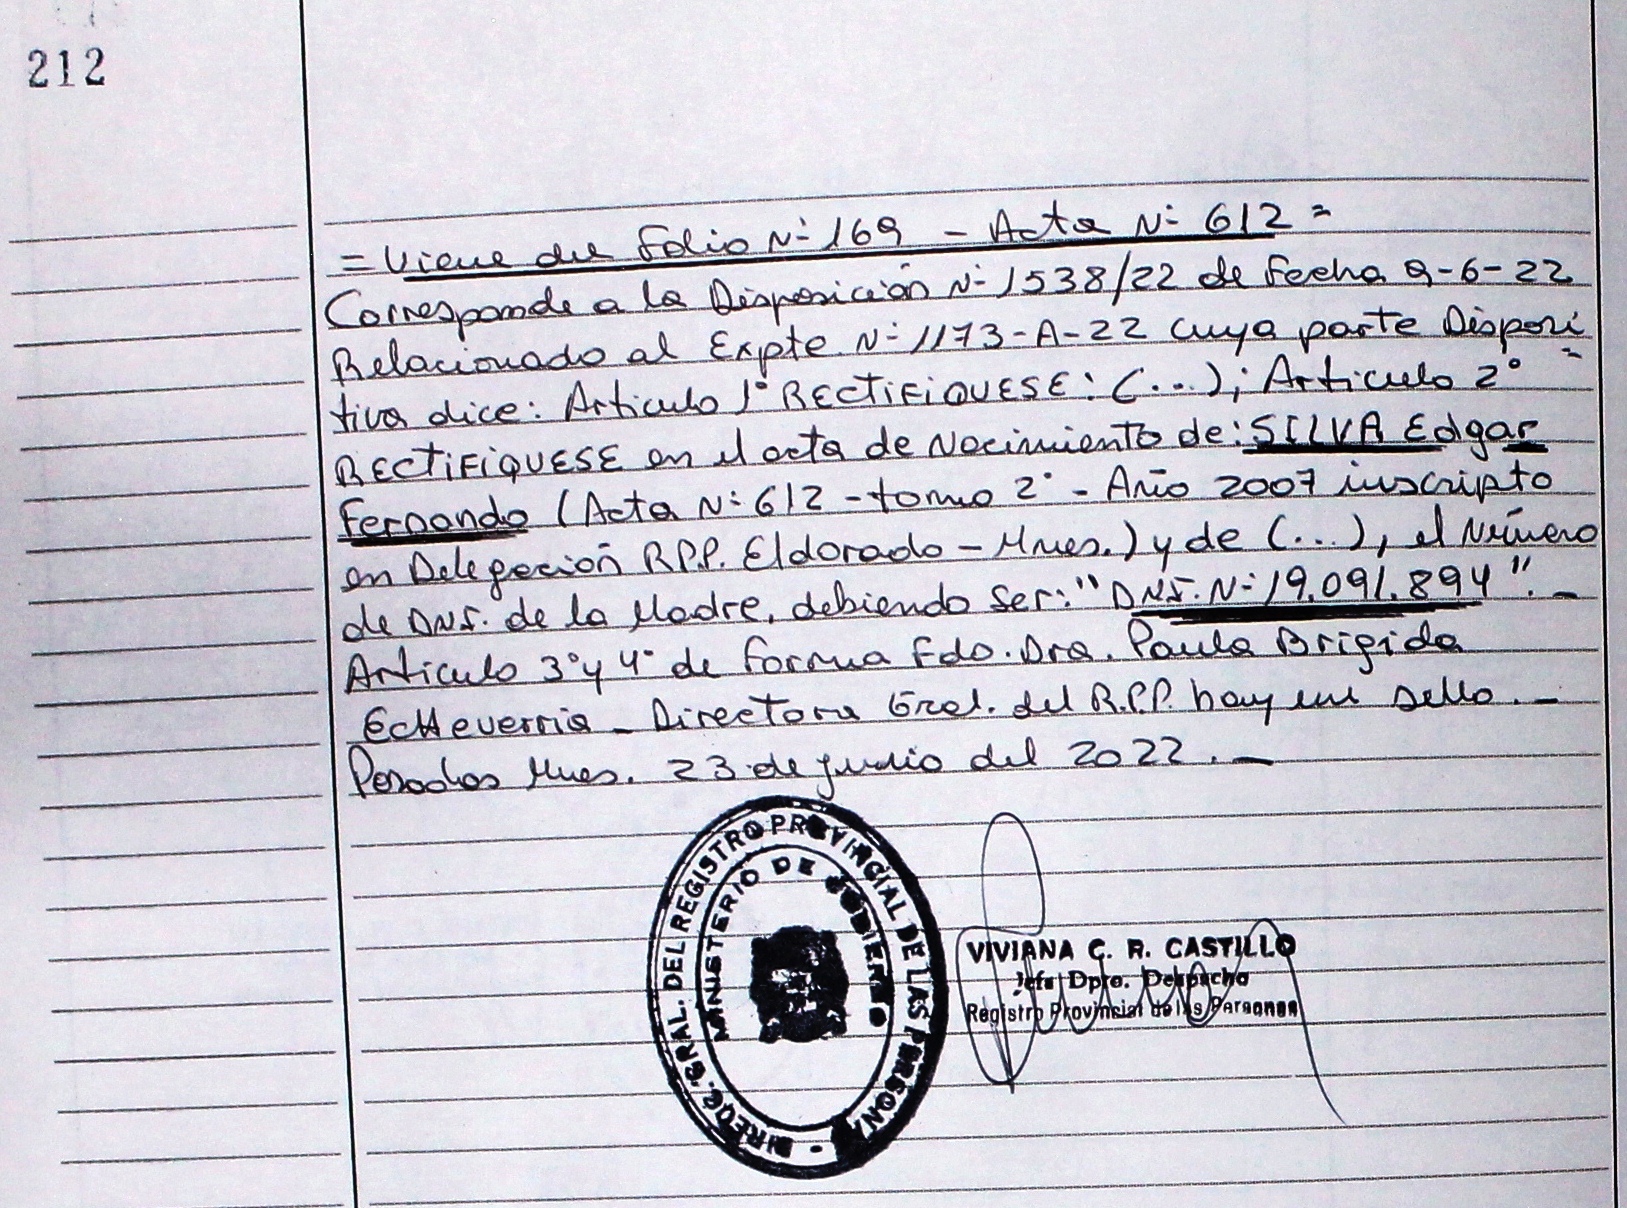 212
= Viene del Folio Nº 169 - Acta Nº 612 =
Corresponde a la Disposición Nº 1538/22 de Fecha 9-6-22
Relacionado al Expte. Nº 1173-A-22 cuya parte Disposi=
tiva dice: Articulo 1º RECTIFIQUESE: (...); Articulo 2º
RECTIFIQUESE en el acta de Nacimiento de: SILVA Edgar
Fernando (Acta Nº 612 - tomo 2º - Año 2007 inscripto
en Delegación R.P.P. Eldorado - Mnes.) y de (...), el Número
de DNI. de la Madre, debiendo ser: "DNI. Nº 19.091.894". -
Articulo 3º y 4º de forma Fdo. Dra. Paula Brigida
EcHeverria - Directora Gral. del R.P.P. hay un sello. -
Posadas Mnes. 23 de junio del 2022. -
DIREC. GRAL. DEL REGISTRO PROVINCIAL DE LAS PERSONAS -
MINISTERIO DE GOBIERNO
VIVIANA C. R. CASTILLO
Jefa Dpto. Despacho
Registro Provincial de las Personas